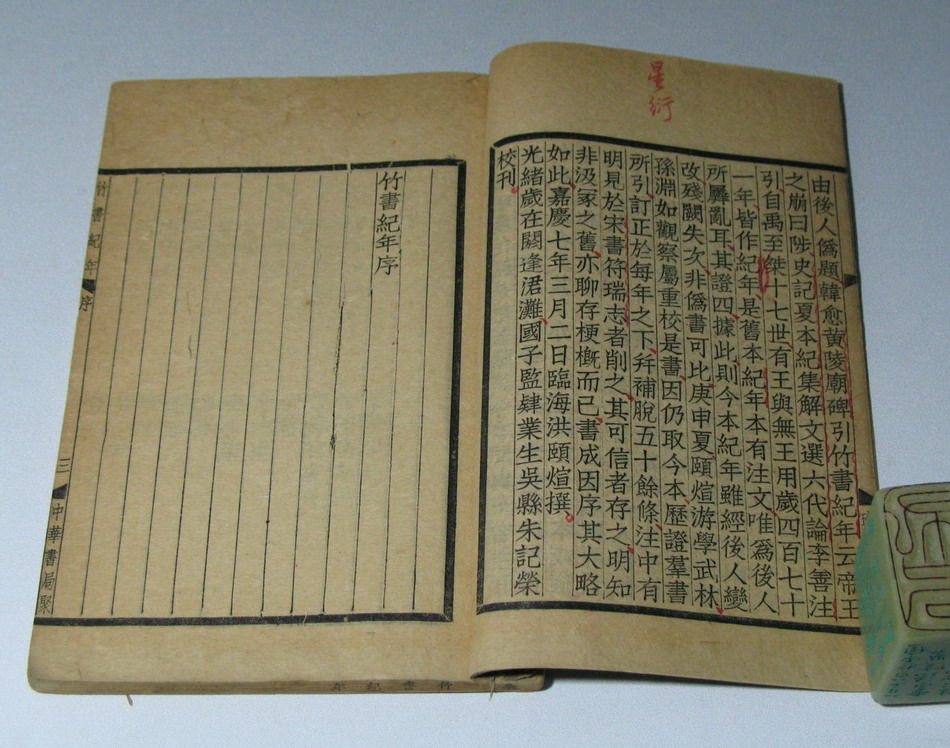 星衍
由後人僞題韓愈黃陵廟碑引竹書紀年云帝王
之崩曰陟史記夏本紀集解文選六代論李善注
引自禹至桀十七世有王與無王用歲四百七十
一年皆作紀年是舊本紀年本有注文唯爲後人
所羼亂耳其證四據此則今本紀年雖經後人變
改殘闕失次非僞書可比庚申夏頤煊游學武林
孫淵如觀察屬重校是書因仍取今本歷證羣書
所引訂正於每年之下幷補脫五十餘條注中有
明見於宋書符瑞志者削之其可信者存之明知
非汲冢之舊亦聊存梗槪而已書成因序其大略
如此嘉慶七年三月二日臨海洪頤煊撰
光緒歲在閼逢涒灘國子監肄業生吳縣朱記榮
校刊
竹書紀年序
竹書紀年
序
三
中華書局聚
竹書紀年